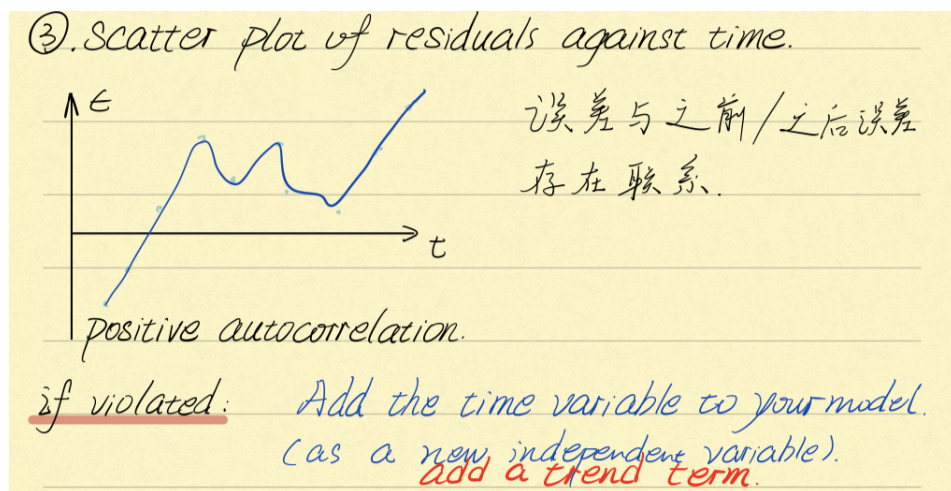 ③. Scatter plot of residuals against time.
ε
误差与之前/之后误差
存在联系.
t
positive autocorrelation.
if violated: Add the time variable to your model.
(as a new independent variable).
add a trend term.